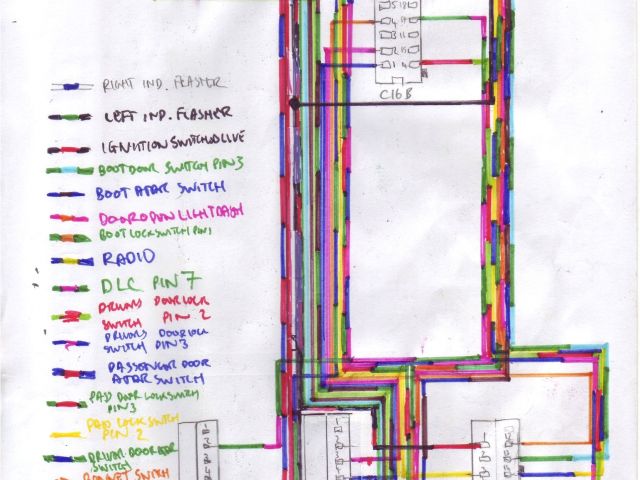 5 18
4 17
3 16
2 15
1 14
C16B
RIGHT IND. FLASHER
LEFT IND. FLASHER
IGNITION SWITCHED LIVE
BOOT DOOR SWITCH PIN 3
BOOT AJAR SWITCH
DOOR OPEN LIGHT DASH
BOOT LOCK SWITCH PIN 1
RADIO
DLC PIN 7
DRIVERS DOOR LOCK
SWITCH PIN 2
DRIVERS DOOR LOCK
SWITCH PIN 3
PASSENGER DOOR
AJAR SWITCH
PASS DOOR LOCK SWITCH
PIN 3
PASS LOCK SWITCH
PIN 2
DRIVER DOOR AJAR
SWITCH
BONNET SWITCH
1
2
3
4